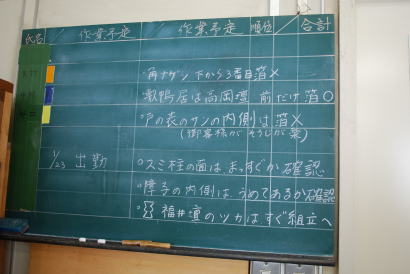 氏名 / 作業予定 / 作業予定 順位 / 合計
角ナゲシ 下から3番目箔×
敷鴨居は高岡壇 前だけ箔○
○戸の表のサンの内側は箔×
(御客様がそうじが楽)
1/23 出勤 ○スミ柱の面はまっすぐか確認
○障子の内側はうめてあるか確認
○福井壇のツカはすぐ組立へ